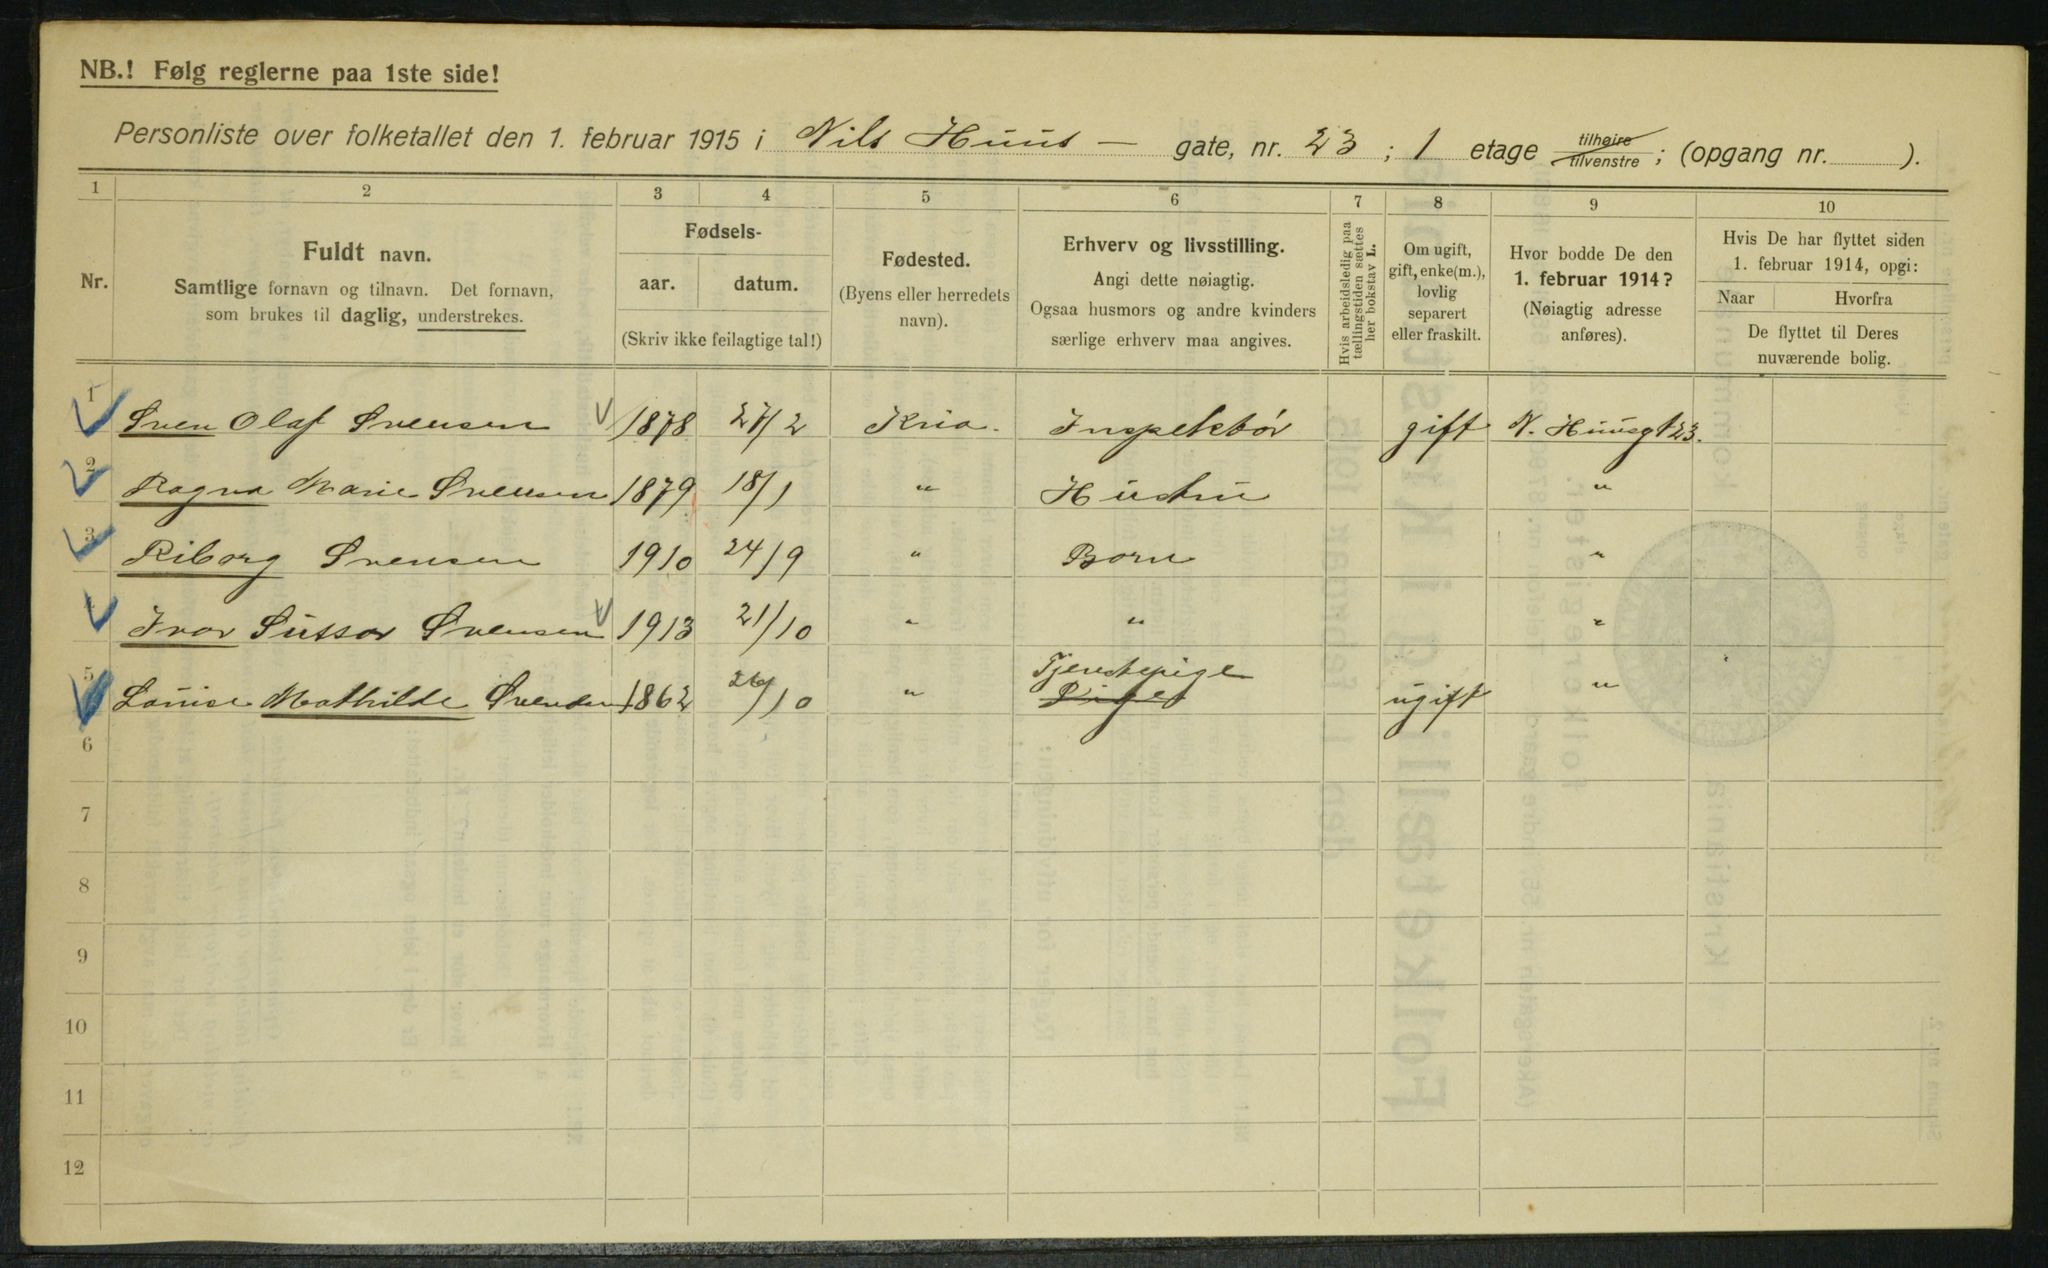 NB.! Følg reglerne paa 1ste side!
Personliste over folketallet den 1. februar 1915 i Nils Huus — gate, nr. 23 ; 1 etage tilhøire tilvenstre ; (opgang nr. ).
1 2 3 4 5 6 7 8 9 10
Nr.
Fuldt navn.
Samtlige fornavn og tilnavn. Det fornavn,
som brukes til daglig, understrekes.
Fødsels-
aar. datum.
(Skriv ikke feilagtige tal!)
Fødested.
(Byens eller herredets
navn).
Erhverv og livsstilling.
Angi dette nøiagtig.
Ogsaa husmors og andre kvinders
særlige erhverv maa angives.
Hvis arbeidsledig paa
tællingstiden sættes
her bokstav L.
Om ugift,
gift, enke(m.),
lovlig
separert
eller fraskilt.
Hvor bodde De den
1. februar 1914?
(Nøiagtig adresse
anføres).
Hvis De har flyttet siden
1. februar 1914, opgi:
Naar Hvorfra
De flyttet til Deres
nuværende bolig.
1 Sven Olaf Svensen 1878 27/2 Kria. Inspektör gift N. Huusgt 23.
2 Ragna Marie Svensen 1879 18/1 " Hustru "
3 Riborg Svensen 1910 24/9 " Born "
4 Ivar Svensen 1913 21/10 " " "
5 Louise Mathilde Svendsen 1862 26/10 " Tjenstepige Piget ugift "
6
7
8
9
10
11
12